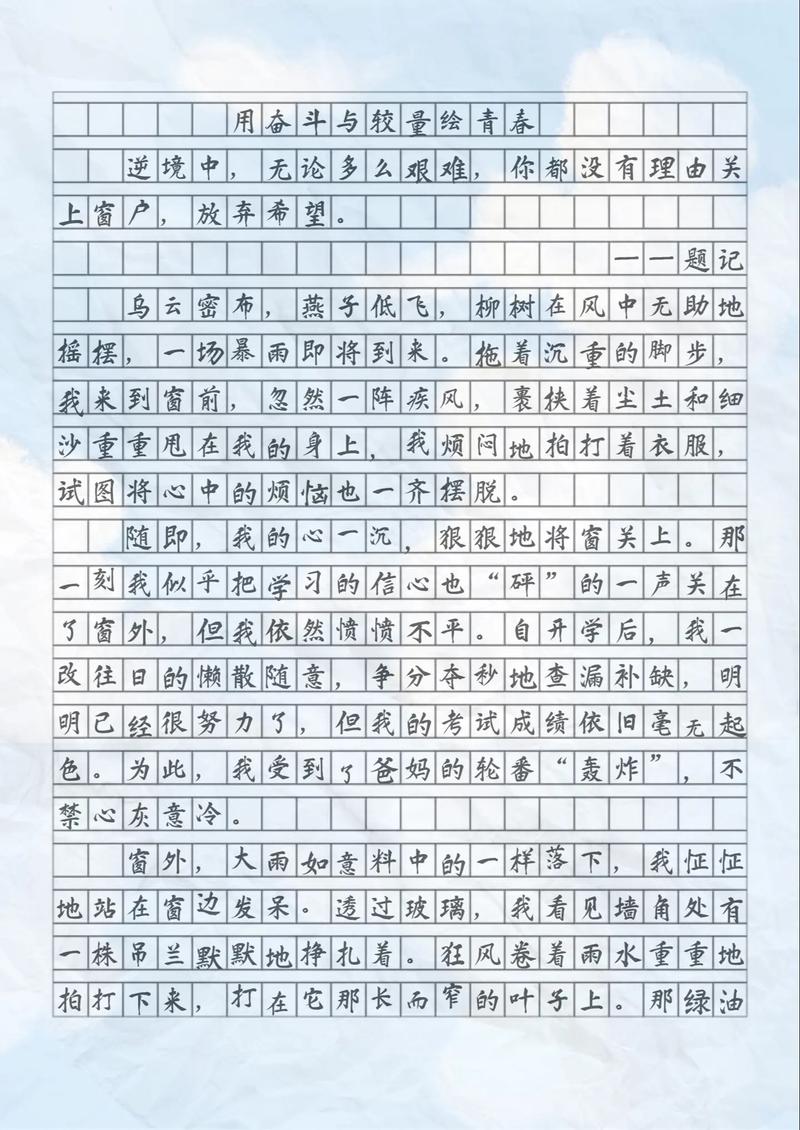 用奋斗与较量绘青春
逆境中，无论多么艰难，你都没有理由关
上窗户，放弃希望。
——题记
乌云密布，燕子低飞，柳树在风中无助地
摇摆，一场暴雨即将到来。拖着沉重的脚步，
我来到窗前，忽然一阵疾风，裹挟着尘土和细
沙重重甩在我的身上，我烦闷地拍打着衣服，
试图将心中的烦恼也一齐摆脱。
随即，我的心一沉，狠狠地将窗关上。那
一刻我似乎把学习的信心也“砰”的一声关在
了窗外，但我依然愤愤不平。自开学后，我一
改往日的懒散随意，争分夺秒地查漏补缺，明
明已经很努力了，但我的考试成绩依旧毫无起
色。为此，我受到了爸妈的轮番“轰炸”，不
禁心灰意冷。
窗外，大雨如意料中的一样落下，我怔怔
地站在窗边发呆。透过玻璃，我看见墙角处有
一株吊兰默默地挣扎着。狂风卷着雨水重重地
拍打下来，打在它那长而窄的叶子上。那绿油